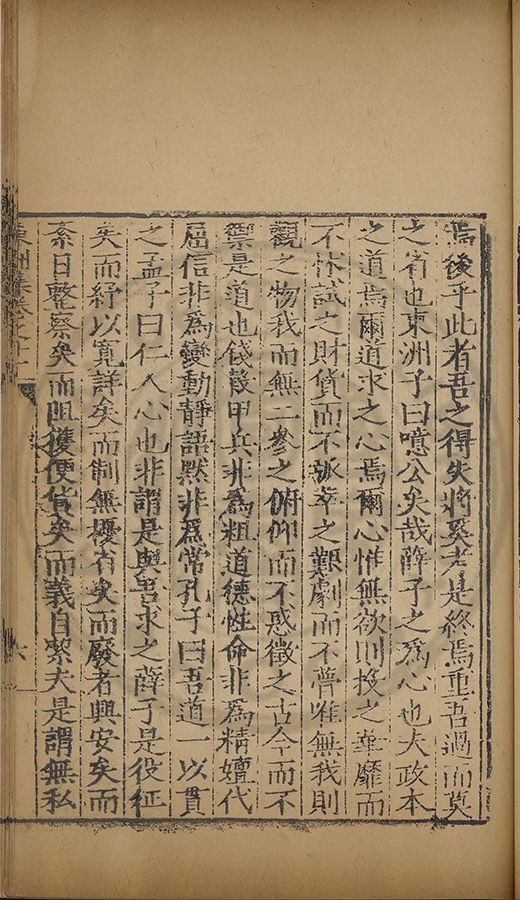 焉後乎此者吾之得失將奚考是終焉重吾過而莫
之省也東洲子曰噫公矣哉薛子之爲心也夫政本
之道焉爾道求之心焉爾心惟無欲則投之華靡而
不怵試之財貨而不 葦之艱劇而不瞢唯無我則
觀之物我而無二參之俯仰而不惑徵之古今而不
禦是道也錢穀甲兵非爲粗道德性命非爲精嬗代
屈信非爲變動靜語默非爲常孔子曰吾道一以貫
之孟子曰仁人心也非謂是與吾求之薛子是役征
矣而紓以寬詳矣而制無擾省矣而廢者興安矣而
紊日整察矣而阻獲便貨矣而義自絜夫是謂無私
東洲 卷之十